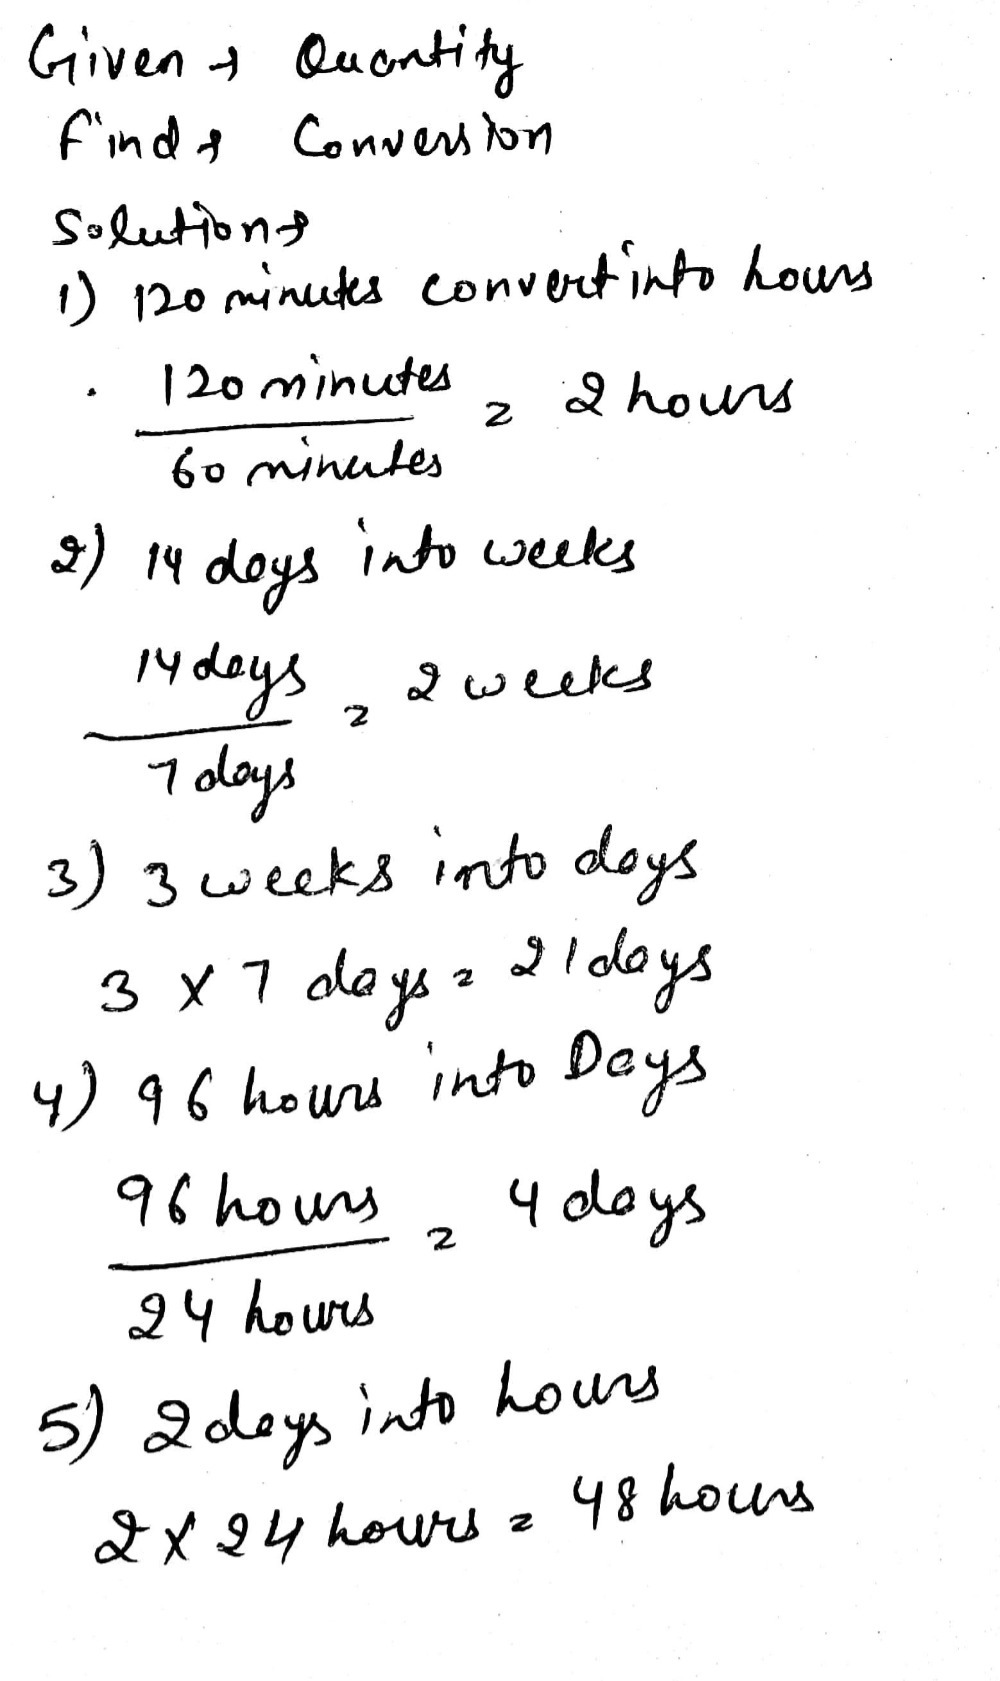 Given → Quantity
Find → Conversion
Solution →
1) 120 minutes convert into hours
120 minutes / 60 minutes = 2 hours
2) 14 days into weeks
14 days / 7 days = 2 weeks
3) 3 weeks into days
3 x 7 days = 21 days
4) 96 hours into Days
96 hours / 24 hours = 4 days
5) 2 days into hours
2 x 24 hours = 48 hours